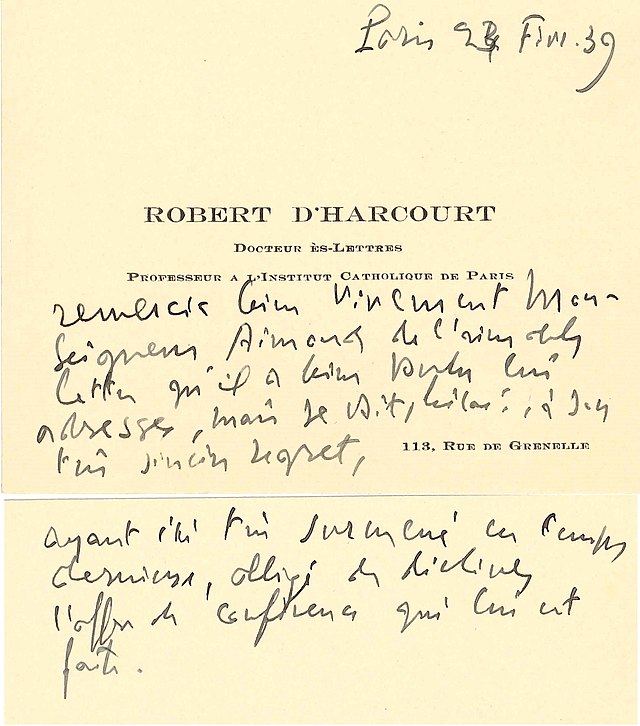 Paris 24 Févr. 39
ROBERT D'HARCOURT
DOCTEUR ÈS-LETTRES
PROFESSEUR A L'INSTITUT CATHOLIQUE DE PARIS
remercie bien vivement Mon-
seigneur Aimond de l'aimable
lettre qu'il a bien voulu lui
adresser, mais se voit, hélas!, à son
très sincère regret,
113, RUE DE GRENELLE
ayant été très surmené ces temps
derniers, obligé de décliner
l'offre de conférence qui lui est
faite.